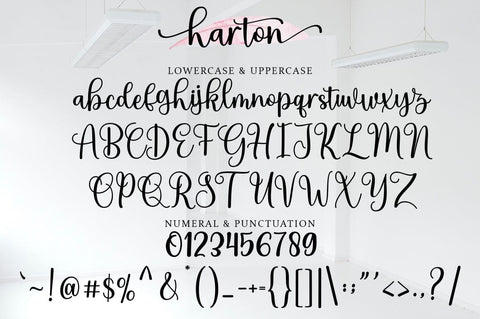 harton
LOWERCASE & UPPERCASE
abcdefghijklmnopqrstuvwxyz
ABCDEFGHIJKLMN
OPQRSTUVWXYZ
NUMERAL & PUNCTUATION
0123456789
`~!@#$%^&*()_-+={}[]|\:;"'<>.,?/